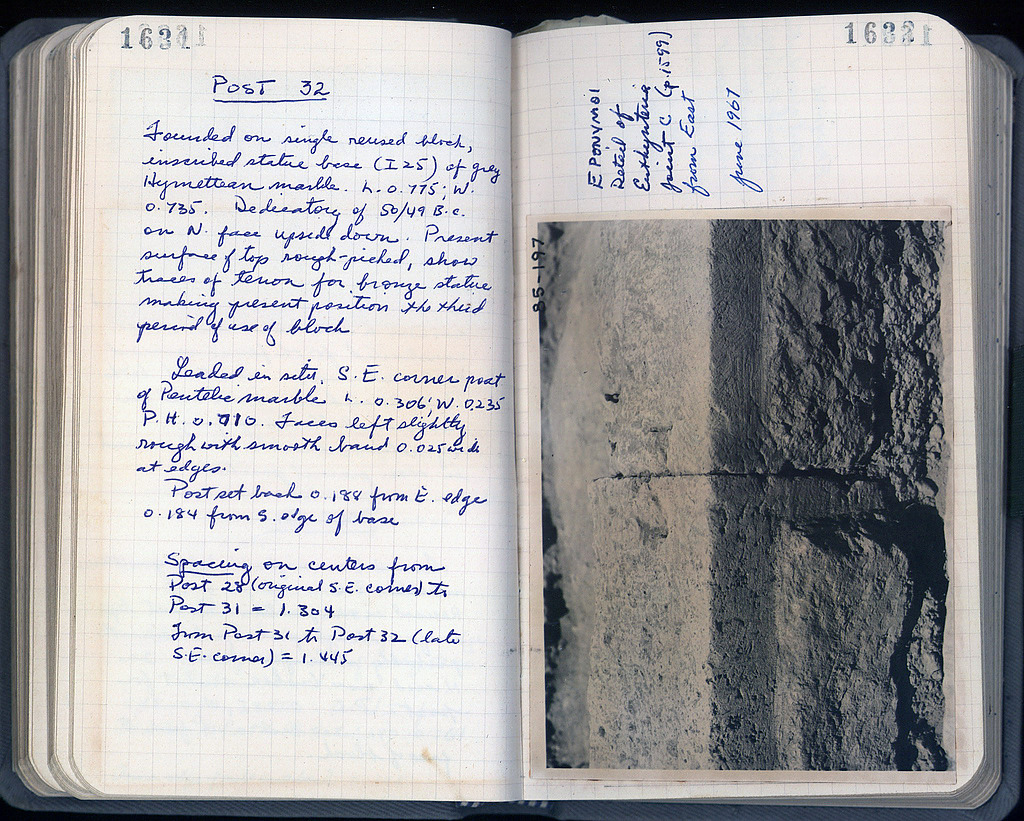 1631
POST 32
Founded on single reused block,
inscribed statue base (I 25) of grey
Hymettean marble. L. 0.775; W.
0.735. Dedicatory of 50/49 B.C.
on N. face upside down. Present
surface of top rough-picked, show
traces of tenon for bronze statue
making present position the third
period of use of block
Leaded in situ, S.E. corner post
of Pentelic marble L. 0.306; W. 0.235
P.H. 0.710. Faces left slightly
rough with smooth band 0.025 wide
at edges.
Post set back 0.188 from E. edge
0.184 from S. edge of base
Spacing on centers from
Post 28 (original S.E. corner) to
Post 31 = 1.304
From Post 31 to Post 32 (late
S.E. corner) = 1.445
EPONYMOI
Detail of
Euthynteria
Joint C (p. 1599)
from East
June 1967
85-197